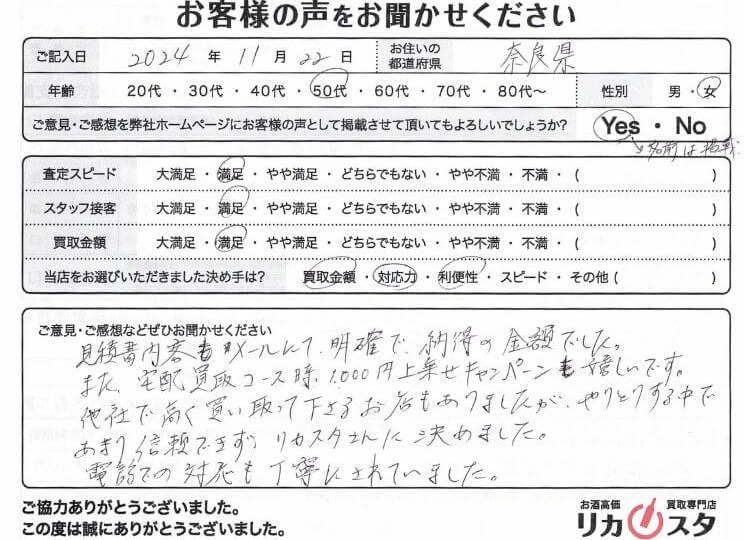 お客様の声をお聞かせください
ご記入日 2024 年 11 月 22 日 お住いの都道府県 奈良県
年齢 20代・30代・40代・50代・60代・70代・80代~ 性別 男・女
ご意見・ご感想を弊社ホームページにお客様の声として掲載させて頂いてもよろしいでしょうか? Yes・No
名前は掲載
査定スピード 大満足・満足・やや満足・どちらでもない・やや不満・不満・( )
スタッフ接客 大満足・満足・やや満足・どちらでもない・やや不満・不満・( )
買取金額 大満足・満足・やや満足・どちらでもない・やや不満・不満・( )
当店をお選びいただきました決め手は? 買取金額・対応力・利便性・スピード・その他( )
ご意見・ご感想などぜひお聞かせください
見積書内容もメールにて、明確で、納得の金額でした。
また、宅配買取コース時、1,000円上乗せキャンペーンも嬉しいです。
他社で高く買い取って下さるお店もありましたが、やりとりする中で
あまり信頼できず、リカスタさんに決めました。
電話での対応も丁寧にされていました。
ご協力ありがとうございました。
この度は誠にありがとうございました。
お酒高価 買取専門店
リカスタ